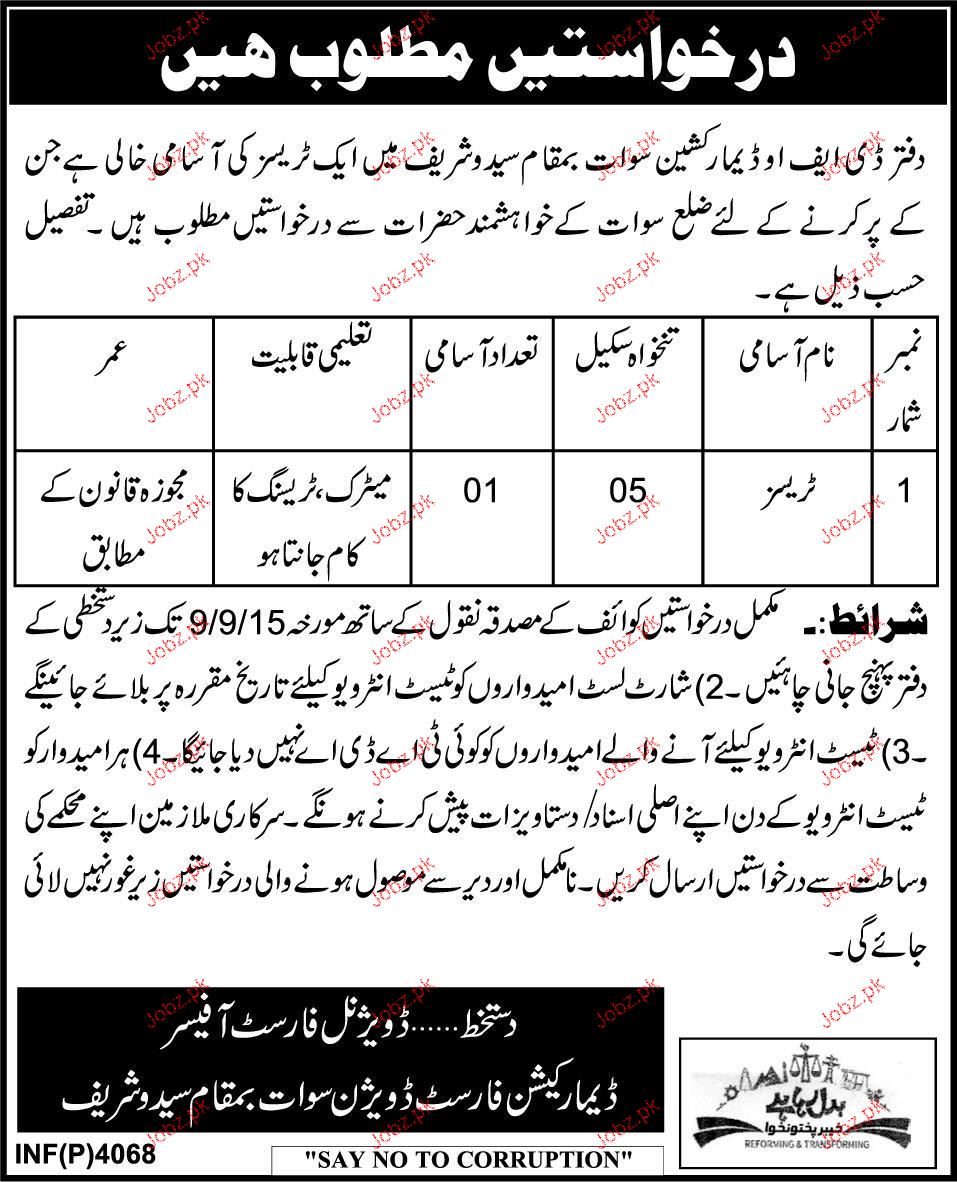 درخواستیں مطلوب ہیں
دفتر ڈی ایف او ڈیمارکشین سوات بمقام سیدو شریف میں ایک ٹریسز کی آسامی خالی ہے جن
کے پر کرنے کے لئے ضلع سوات کے خواہشمند حضرات سے درخواستیں مطلوب ہیں۔ تفصیل
حسب ذیل ہے۔
نمبر شمار | نام آسامی | تنخواہ سکیل | تعداد آسامی | تعلیمی قابلیت | عمر
1 | ٹریسز | 05 | 01 | میٹرک، ٹریسنگ کا کام جانتا ہو | مجوزہ قانون کے مطابق
شرائط:۔ مکمل درخواستیں کوائف کے مصدقہ نقول کے ساتھ مورخہ 9/9/15 تک زیر دستخطی کے
دفتر پہنچ جانی چاہئیں۔ 2) شارٹ لسٹ امیدواروں کو ٹیسٹ انٹرویو کیلئے تاریخ مقررہ پر بلائے جائینگے
۔3) ٹیسٹ انٹرویو کیلئے آنے والے امیدواروں کو کوئی ٹی اے ڈی اے نہیں دیا جائیگا۔ 4) ہر امیدوار کو
ٹیسٹ انٹرویو کے دن اپنے اصلی اسناد/ دستاویزات پیش کرنے ہونگے۔ سرکاری ملازمین اپنے محکمے کی
وساطت سے درخواستیں ارسال کریں۔ نامکمل اور دیر سے موصول ہونے والی درخواستیں زیر غور نہیں لائی
جائے گی۔
دستخط......ڈویژنل فارسٹ آفیسر
ڈیمارکیشن فارسٹ ڈویژن سوات بمقام سیدو شریف
بدل رہا ہے
خیبر پختونخوا
REFORMING & TRANSFORMING
INF(P)4068
"SAY NO TO CORRUPTION"
Jobz.pk